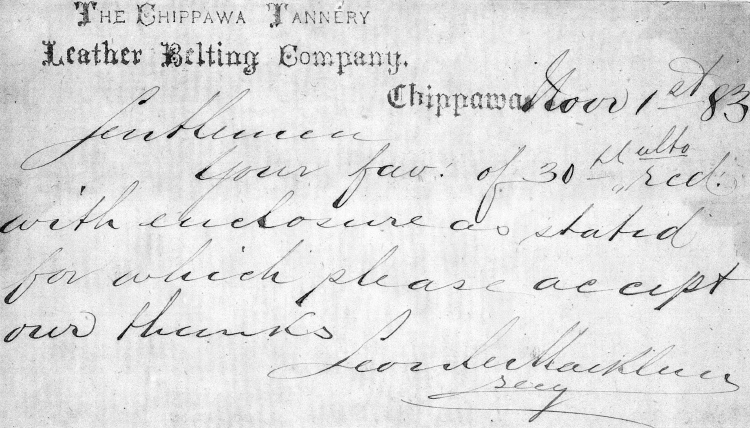 THE CHIPPAWA TANNERY
Leather Belting Company.
Chippawa Novr 1st 83
Gentlemen
Your fav. of 30th ulto recd.
with enclosure as stated
for which please accept
our thanks
Macklem
Secy